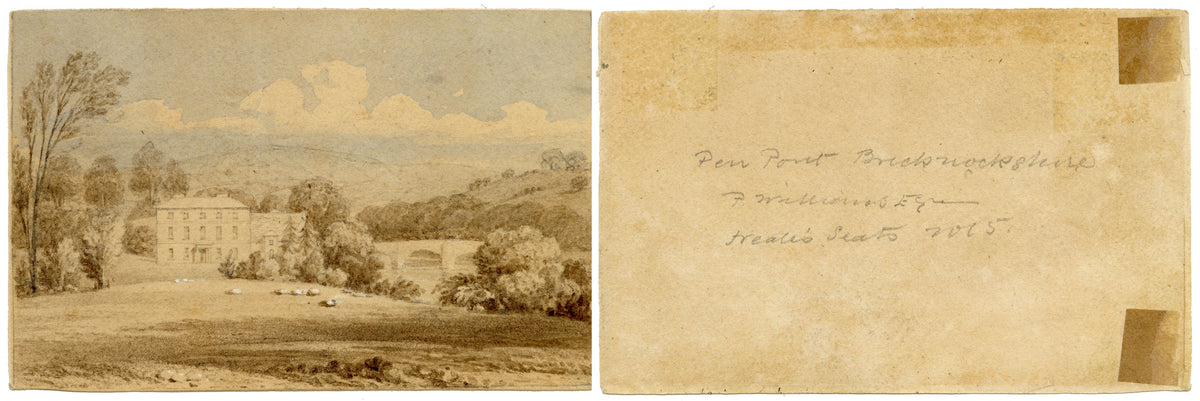 Pen Pont Brecknockshire
P Williams Esqr
Neale's Seats Vol 5.